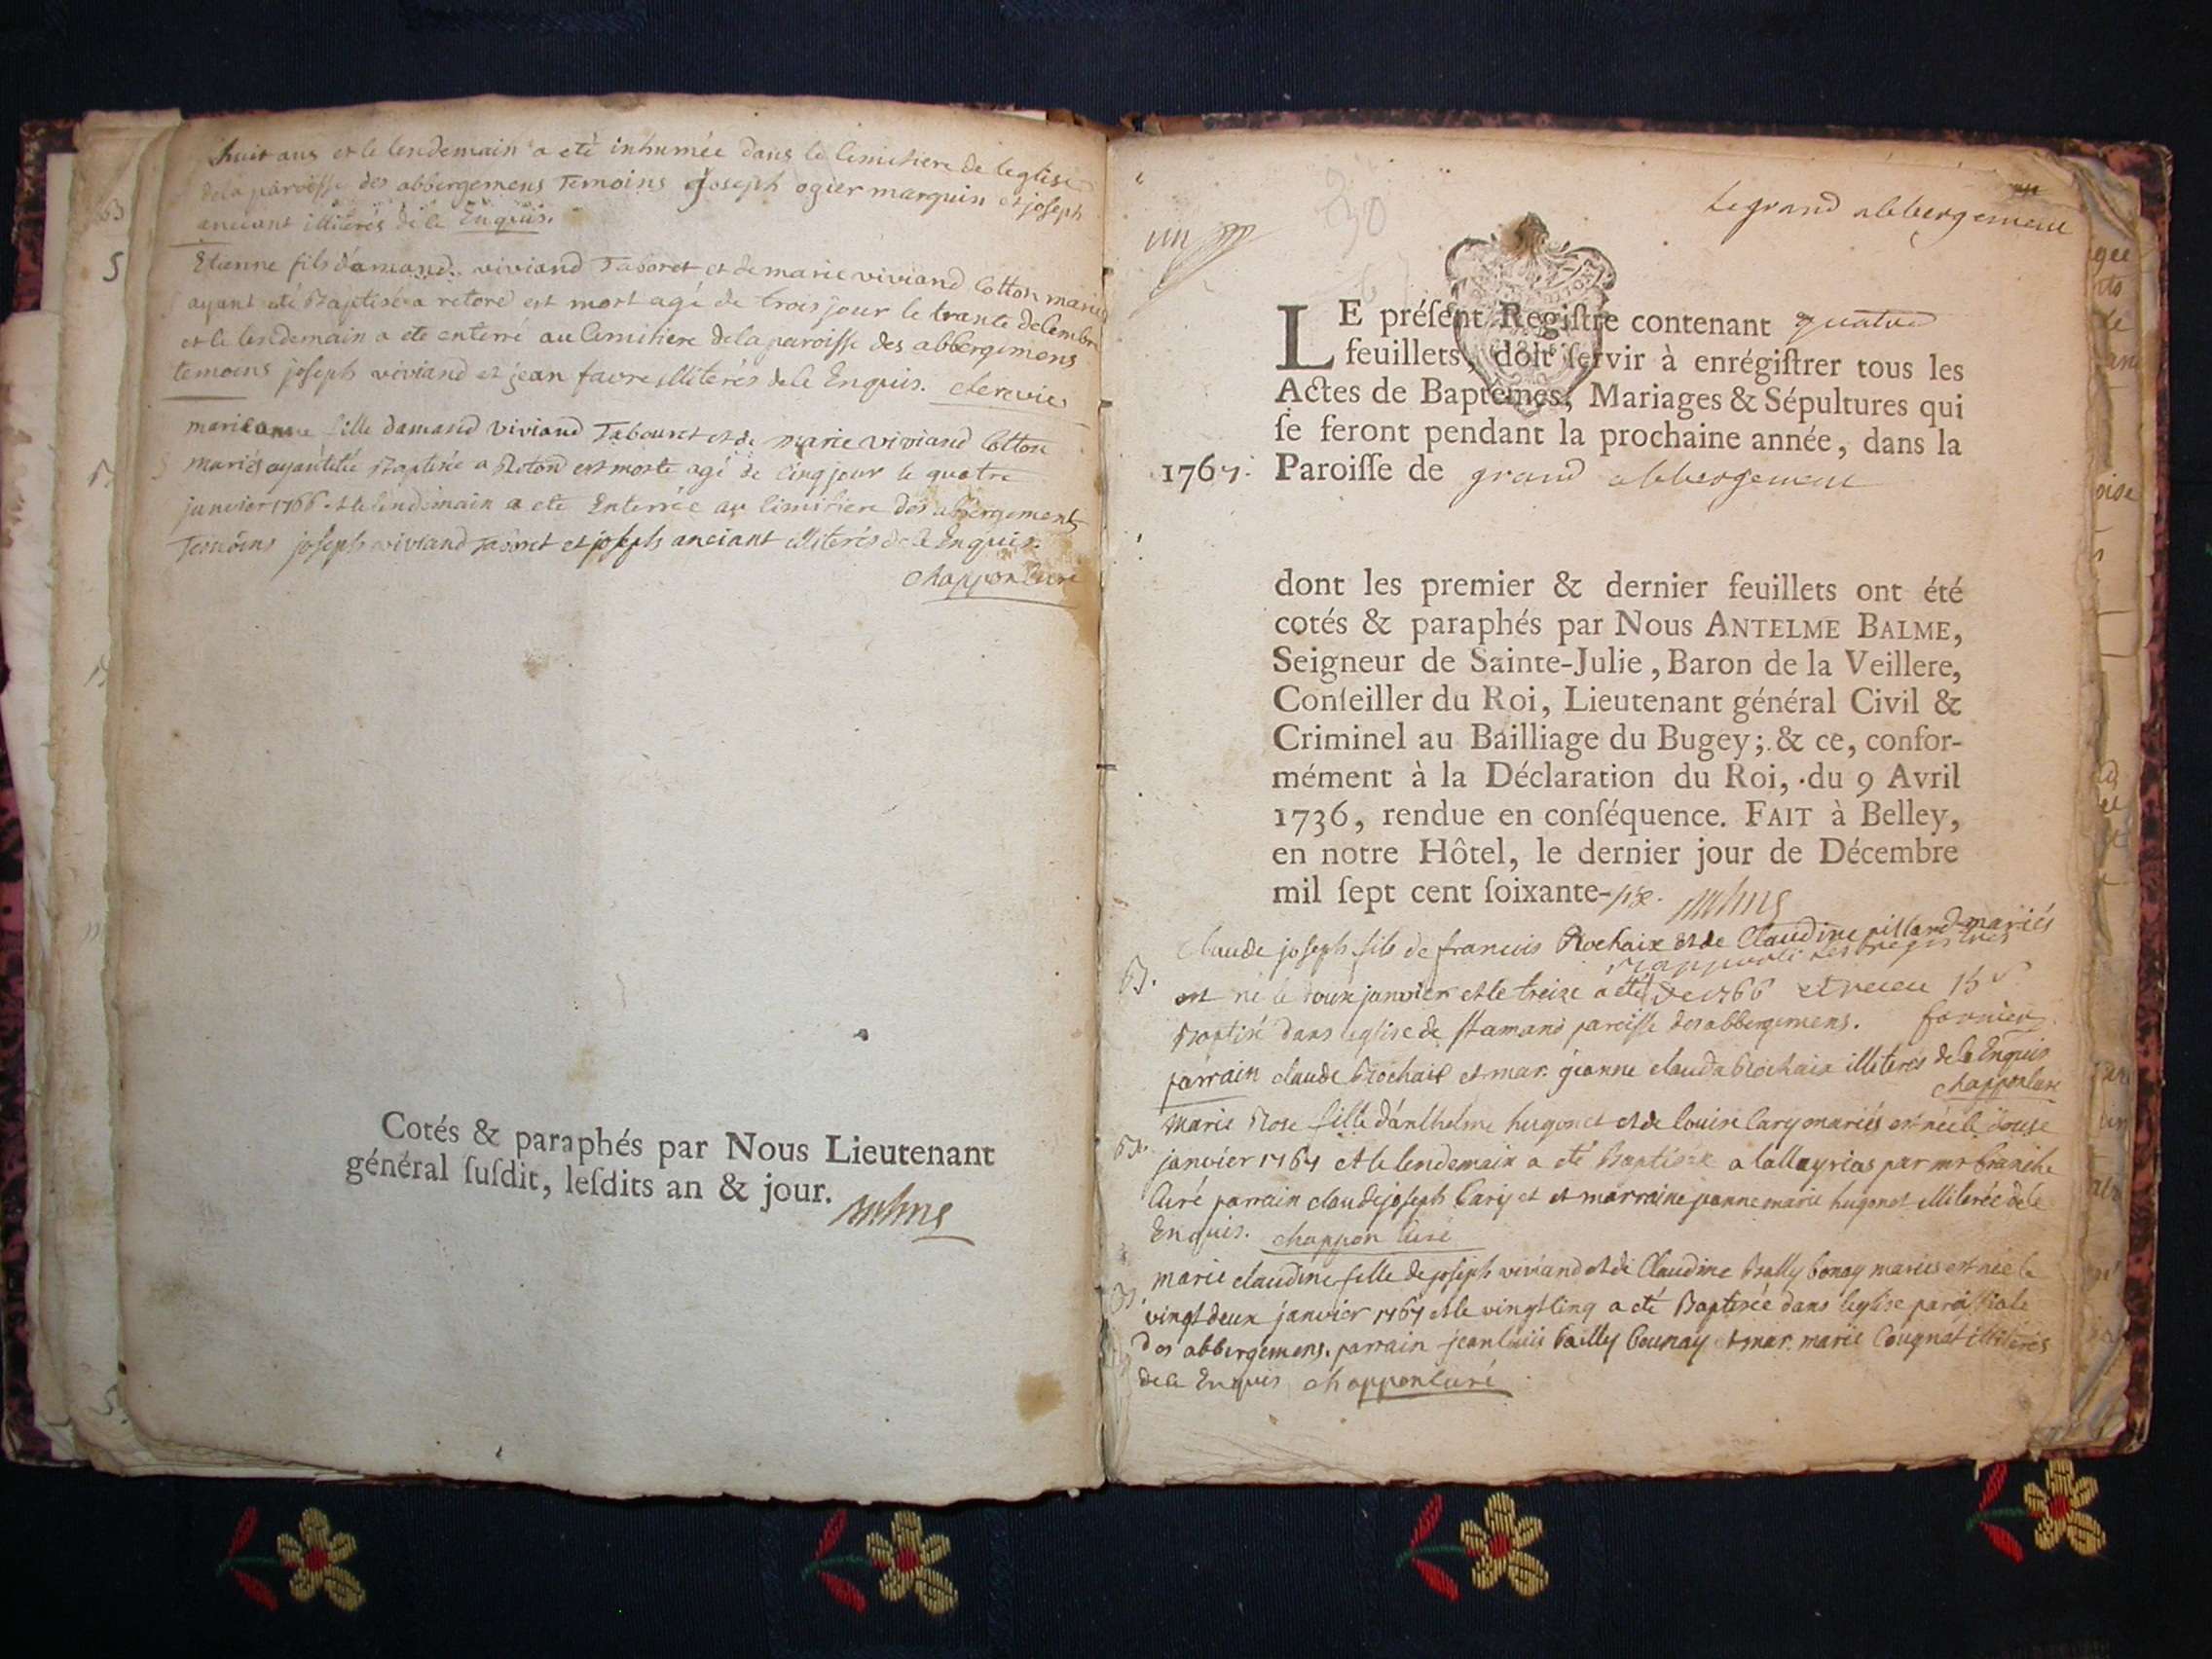 huit ans et le lendemain a eté inhumée dans le Cimitiere de leglise
dela paroisse des abbergemens Temoins joseph ogier marquin et joseph
anciant illiterés de le Enquis.
Etienne fils damand viviand Taboret et de marie viviand Cotton mariés
ayant eté Baptisé a retord est mort agé de trois jour le trante decembre
et le lendemain a ete enterré au Cimitiere dela paroisse des abbergemens
temoins joseph viviand et jean favre illiterés dele Enquis.
marie anne fille damand viviand Tabouret et de marie viviand Cotton
mariés ayant eté Baptisée a Retord est morte agé de Cinq jour le quatre
janvier 1766. et le lendemain a eté Enterrée au Cimitiere des abbergements
Temoins joseph viviand Taboret et joseph anciant illiterés dele Enquis.
chappon Curé
Cotés & paraphés par Nous Lieutenant
général ſuſdit, leſdits an & jour.
un
30
Le grand abbergement
LE préſent Regiſtre contenant quatre
feuillets, doit ſervir à enrégiſtrer tous les
Actes de Baptêmes, Mariages & Sépultures qui
ſe feront pendant la prochaine année, dans la
1767. Paroiſſe de grand abbergement
dont les premier & dernier feuillets ont été
cotés & paraphés par Nous ANTELME BALME,
Seigneur de Sainte-Julie, Baron de la Veillere,
Conſeiller du Roi, Lieutenant général Civil &
Criminel au Bailliage du Bugey; & ce, confor-
mément à la Déclaration du Roi, du 9 Avril
1736, rendue en conſéquence. FAIT à Belley,
en notre Hôtel, le dernier jour de Décembre
mil ſept cent ſoixante-six.
Claude joseph fils de francois Rochaix et de Claudine mariés
B. est né le janvier et le treize a eté de 1766 et receu 15 s
Baptisé dans leglise de st amand paroisse des abbergemens.
parrain claude Rochaix et mar. jeanne clauda Rochaix illiterés de le Enquis
chappon Curé
marie Rose fille danthelme hugonet et de louise Cary mariés est née le douse
B. janvier 1767 et le lendemain a eté Baptisée a lalleyrias par mr
Curé parrain claude joseph Cary et et marraine jeanne marie hugonet illiterée de le
Enquis. chappon Curé
marie claudine fille de joseph viviand et de Claudine Bally mariés est née le
B. vingt deux janvier 1767 et le vingt Cinq a eté Baptisée dans leglise paroissiale
des abbergemens. parrain jean louis Bailly et mar. marie illiterés
de le Enquis chappon Curé